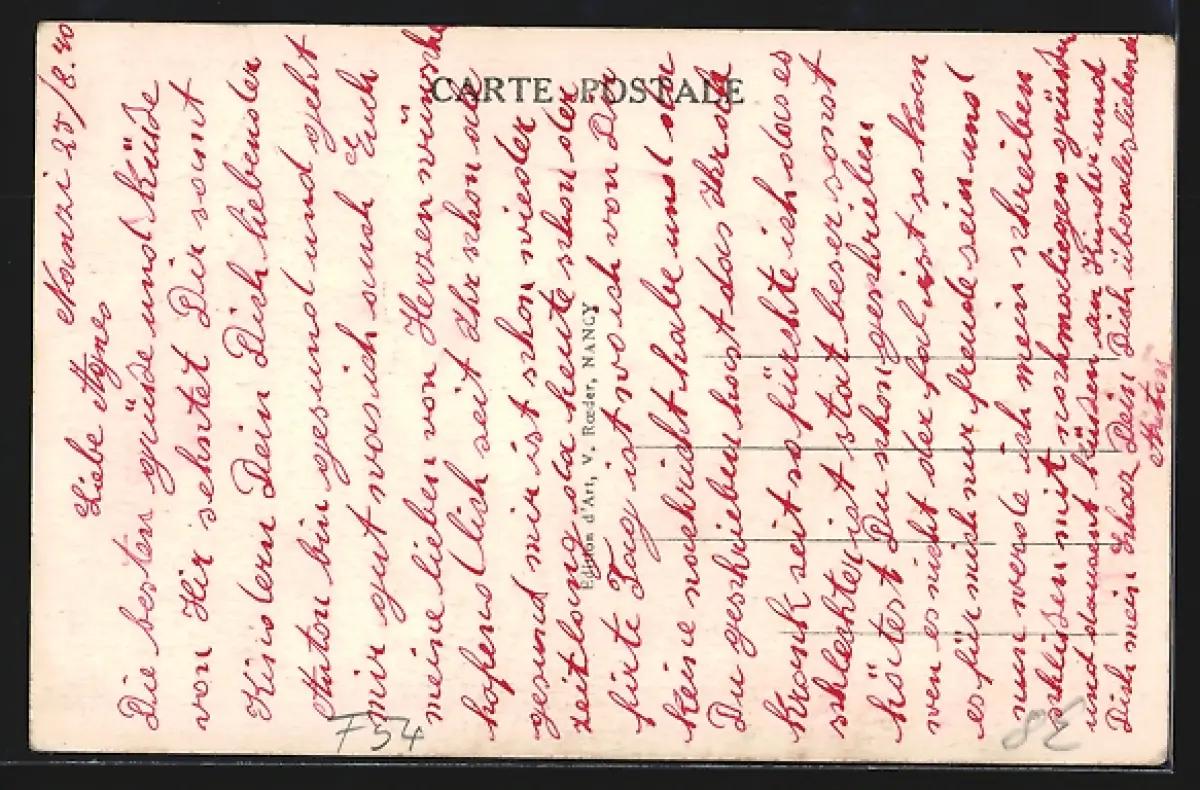 CARTE POSTALE
Edition d'Art, V. Rœder, NANCY
Nanzi 25/8.40
Liebe Agnes
Die besten grüsse und Küsse
von Hir sehntet Dir samt
Kinstern Dein Dich liebenster
Anton bin gesund und geht
mir gut was ich auch Euch
meine lieben von Herzen wünsche
hofendlich seit Ihr schon ale
gesund mir ist schon wieder
zeitlang da heute schon der
fürte Tag ist wo ich von Dir
keine nachricht habe und in
Du geschrieben hast das Ihr ale
Krank seit so fürchte ich das es
schlechter ist stat besser sonst
hätest Du schon geschrieben
wen es nicht der fal ist so kan
es für mich nur freude sein und
nun werde ich mein schreiben
schlisen mit nochmaligen grüssen
und damit küssen an Kinder und
Dich mein Schaz Dein Dich überalesliebende
Anton
F54
8E